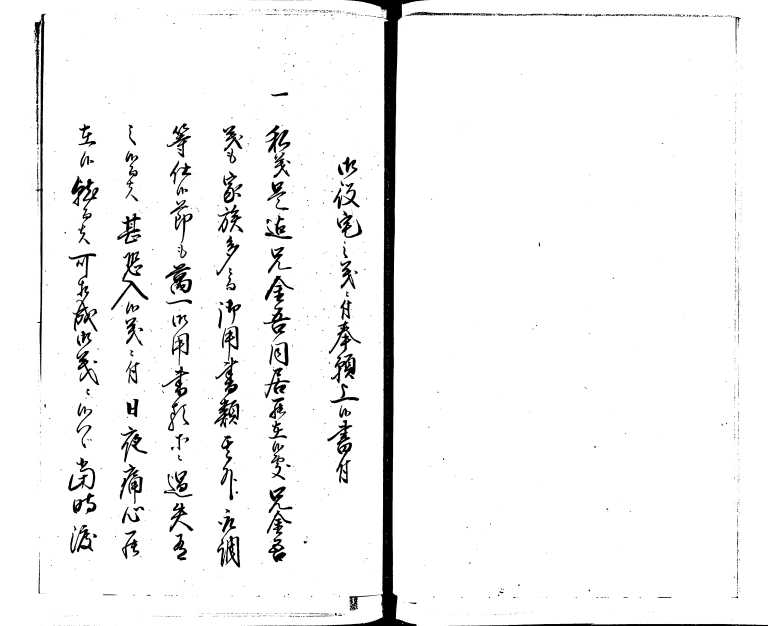 御役宅之義ニ付奉願上候書付
一 私義是迄兄金吾同居罷在候処兄金吾
義も家族多ニ而御用書類其外取調
等仕候節も万一御用書類等ニ過失有
之候而者甚恐入候義ニ付日夜痛心罷
在候就而者可相成御義ニ候ハヽ当時渡